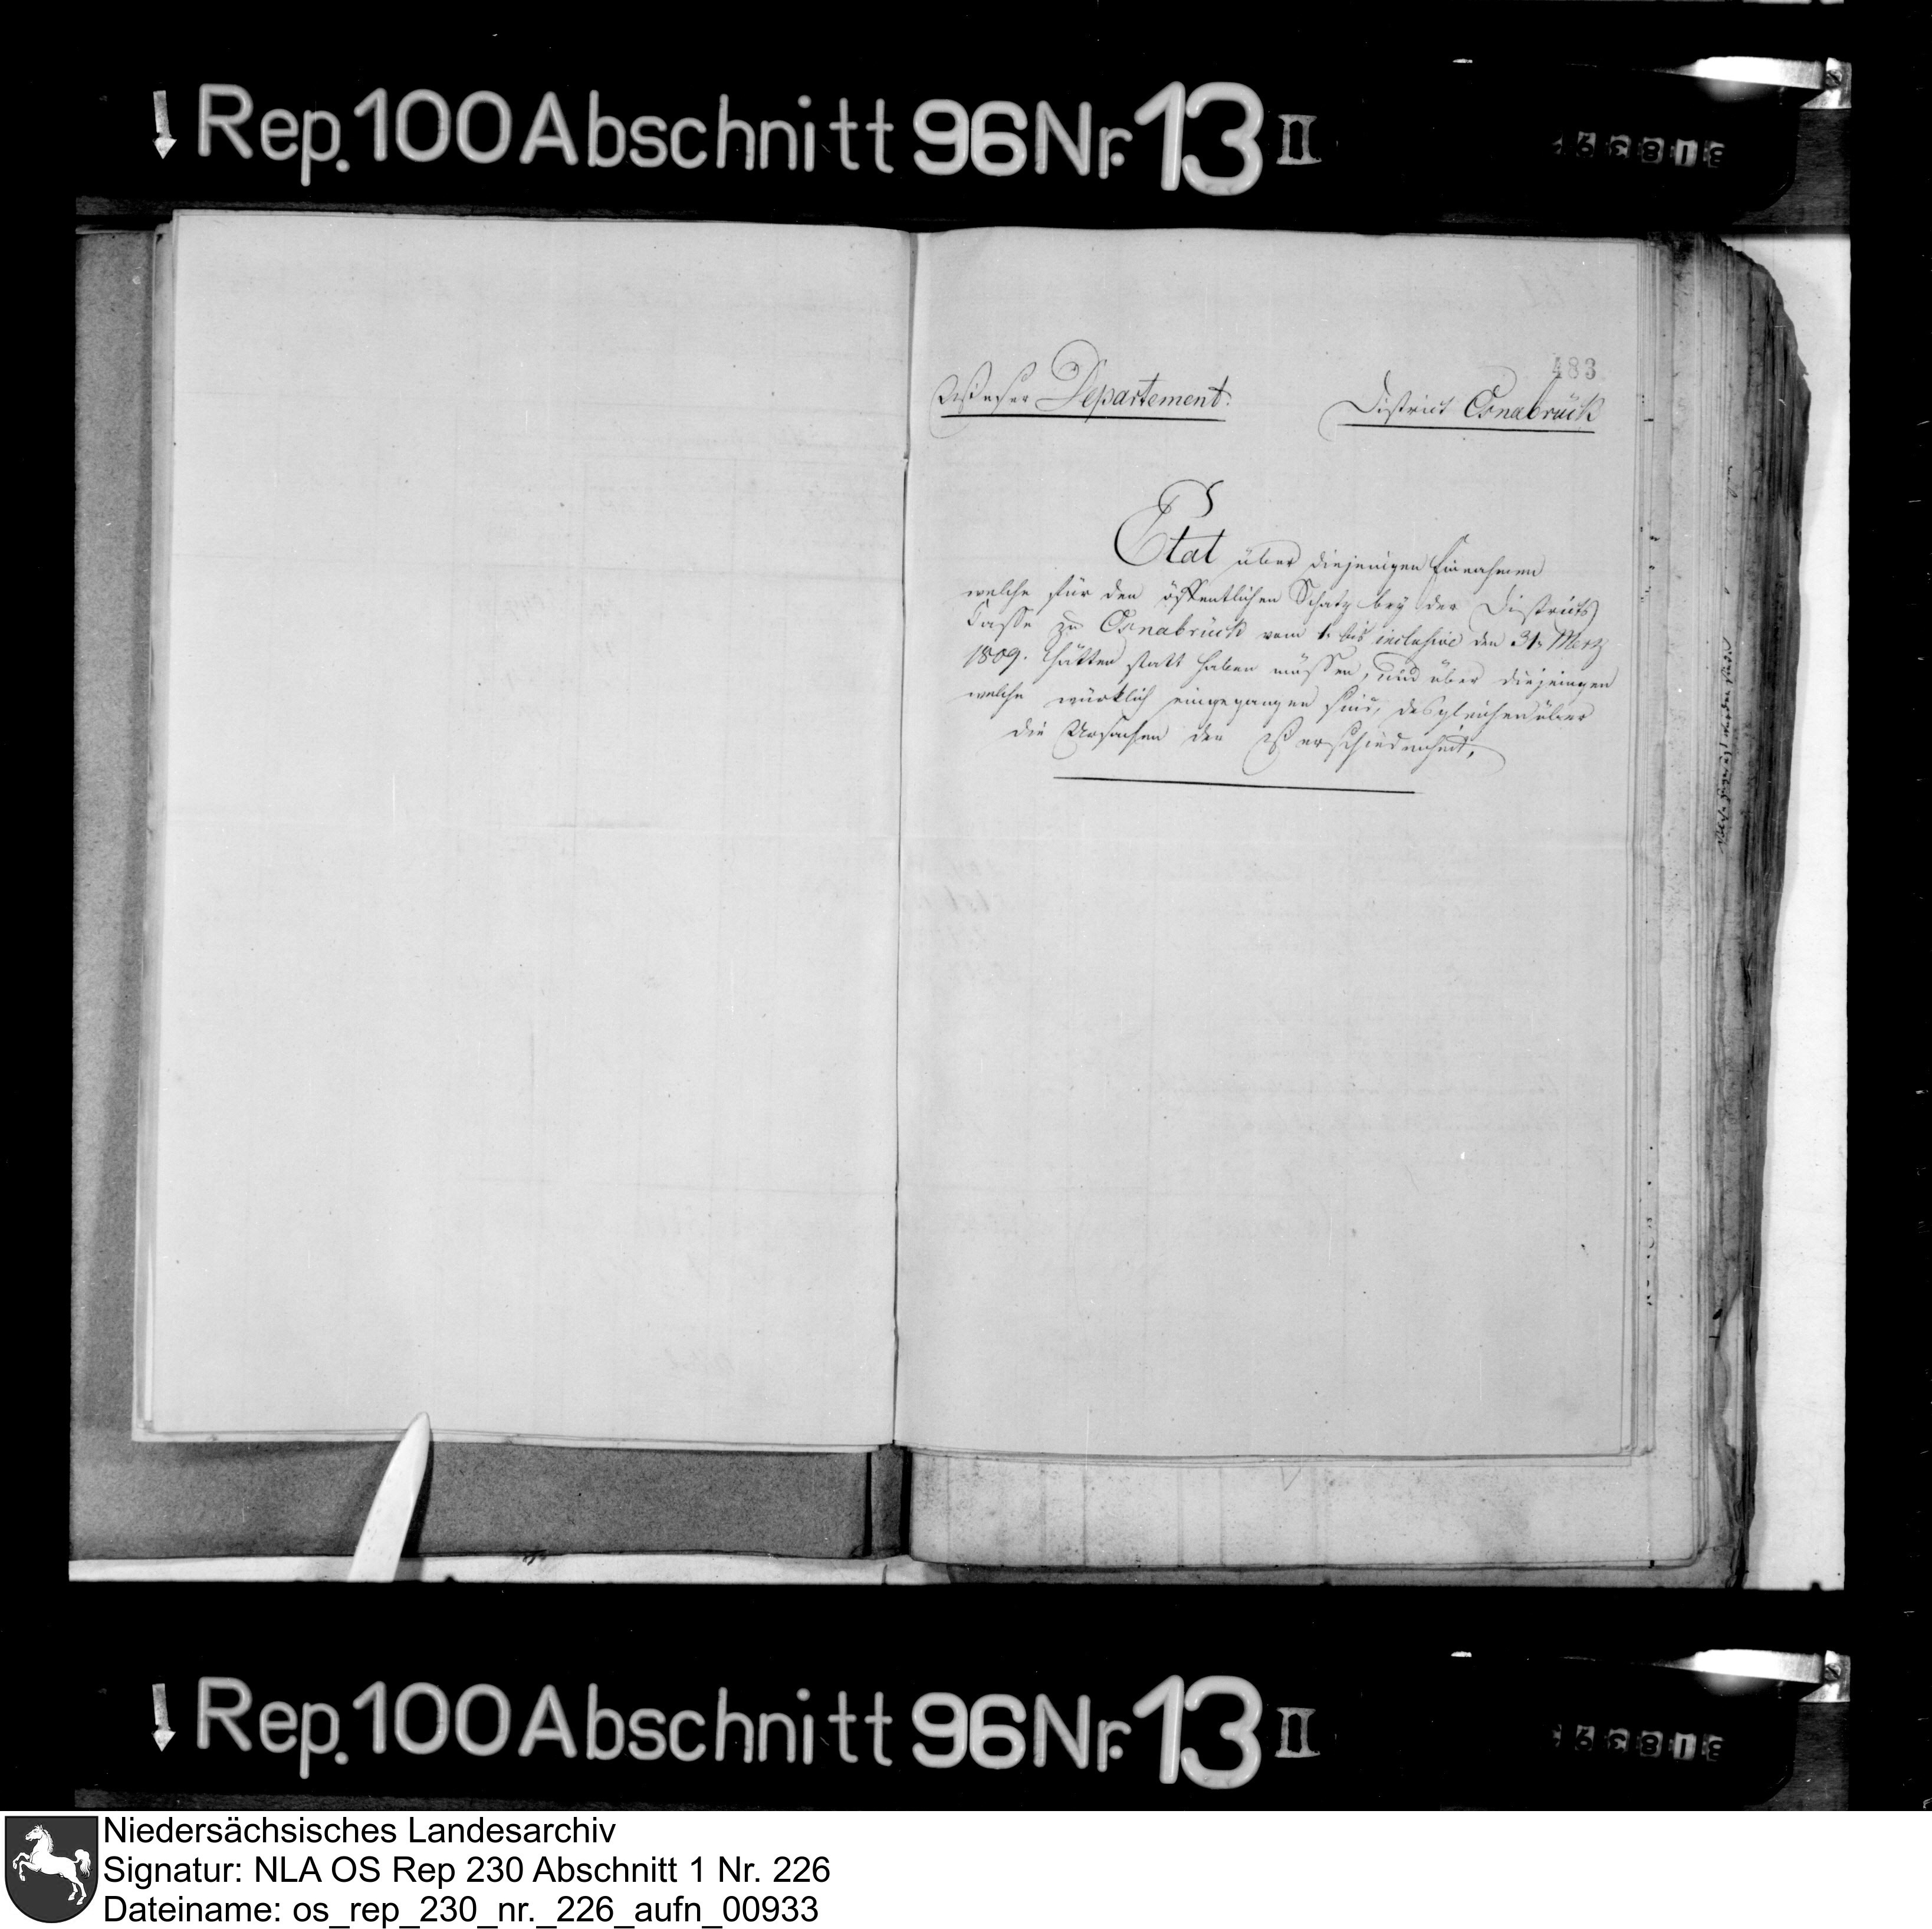 Rep. 100 Abschnitt 96 Nr. 13 II
483
Weser Departement. District Osnabrück
Etat über diejenigen Einnahmen
welche für den öffentlichen Schatz bey der Districts
Casse zu Osnabrück vom 1. bis inclusive den 31. Mertz
1809. hätten statt haben müssen, und über diejenigen
welche würklich eingegangen sind, desgleichen über
die Ursachen der Verschiedenheit.
Rep. 100 Abschnitt 96 Nr. 13 II
Niedersächsisches Landesarchiv
Signatur: NLA OS Rep 230 Abschnitt 1 Nr. 226
Dateiname: os_rep_230_nr._226_aufn_00933